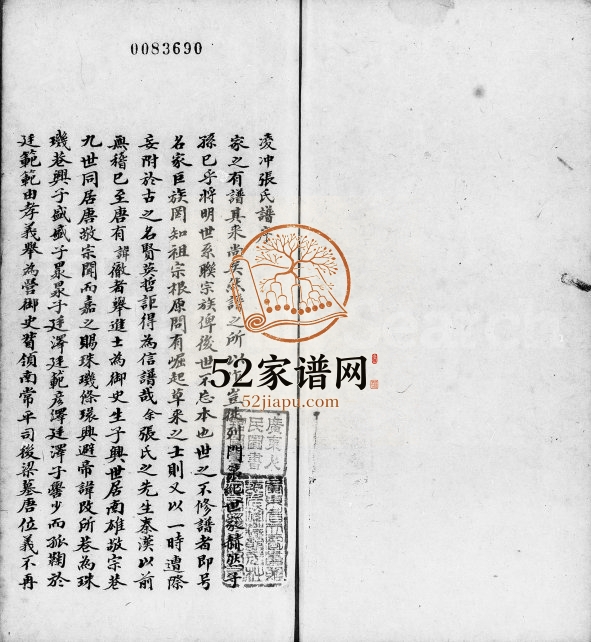 0083690
凌冲張氏譜序
家之有譜其來尚矣張譜之所以作豈徒列門
孫已乎將明世系聯宗族俾後世不忘本也世之不修譜者即号
名家巨族罔知祖宗根原間有崛起草来之士則又以一時遭際
妄附於古之名賢英哲詎得為信譜哉余張氏之先生秦漢以前
無稽已至唐有諱徹者舉進士為御史生子興世居南雄敬宗巷
九世同居唐敬宗聞而嘉之賜珠璣條環興避帝諱改所巷為珠
璣巷興子盛盛子杲杲子廷澤廷範彦澤廷澤子疊少而孤鞠於
廷範範由孝義舉為營御史嘗領南常平司後梁墓唐位義不再
52家谱网
52jiapu.com